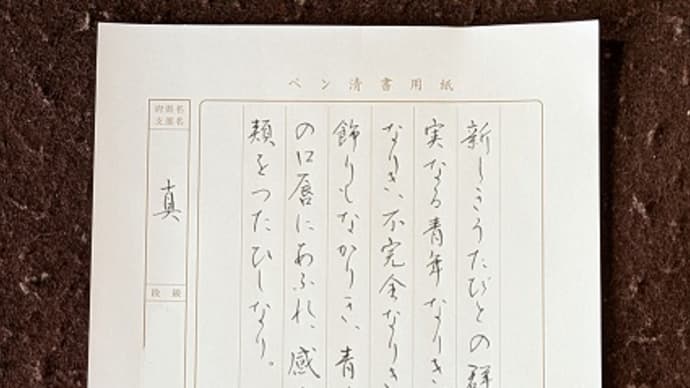 ペン清書用紙
新しきうたびとの群
実なる青年なりき
なりき、不完全なりき
飾りもなかりき、青
の口唇にあふれ、感
頬をつたひしなり。
府県名
支部名
真
段級